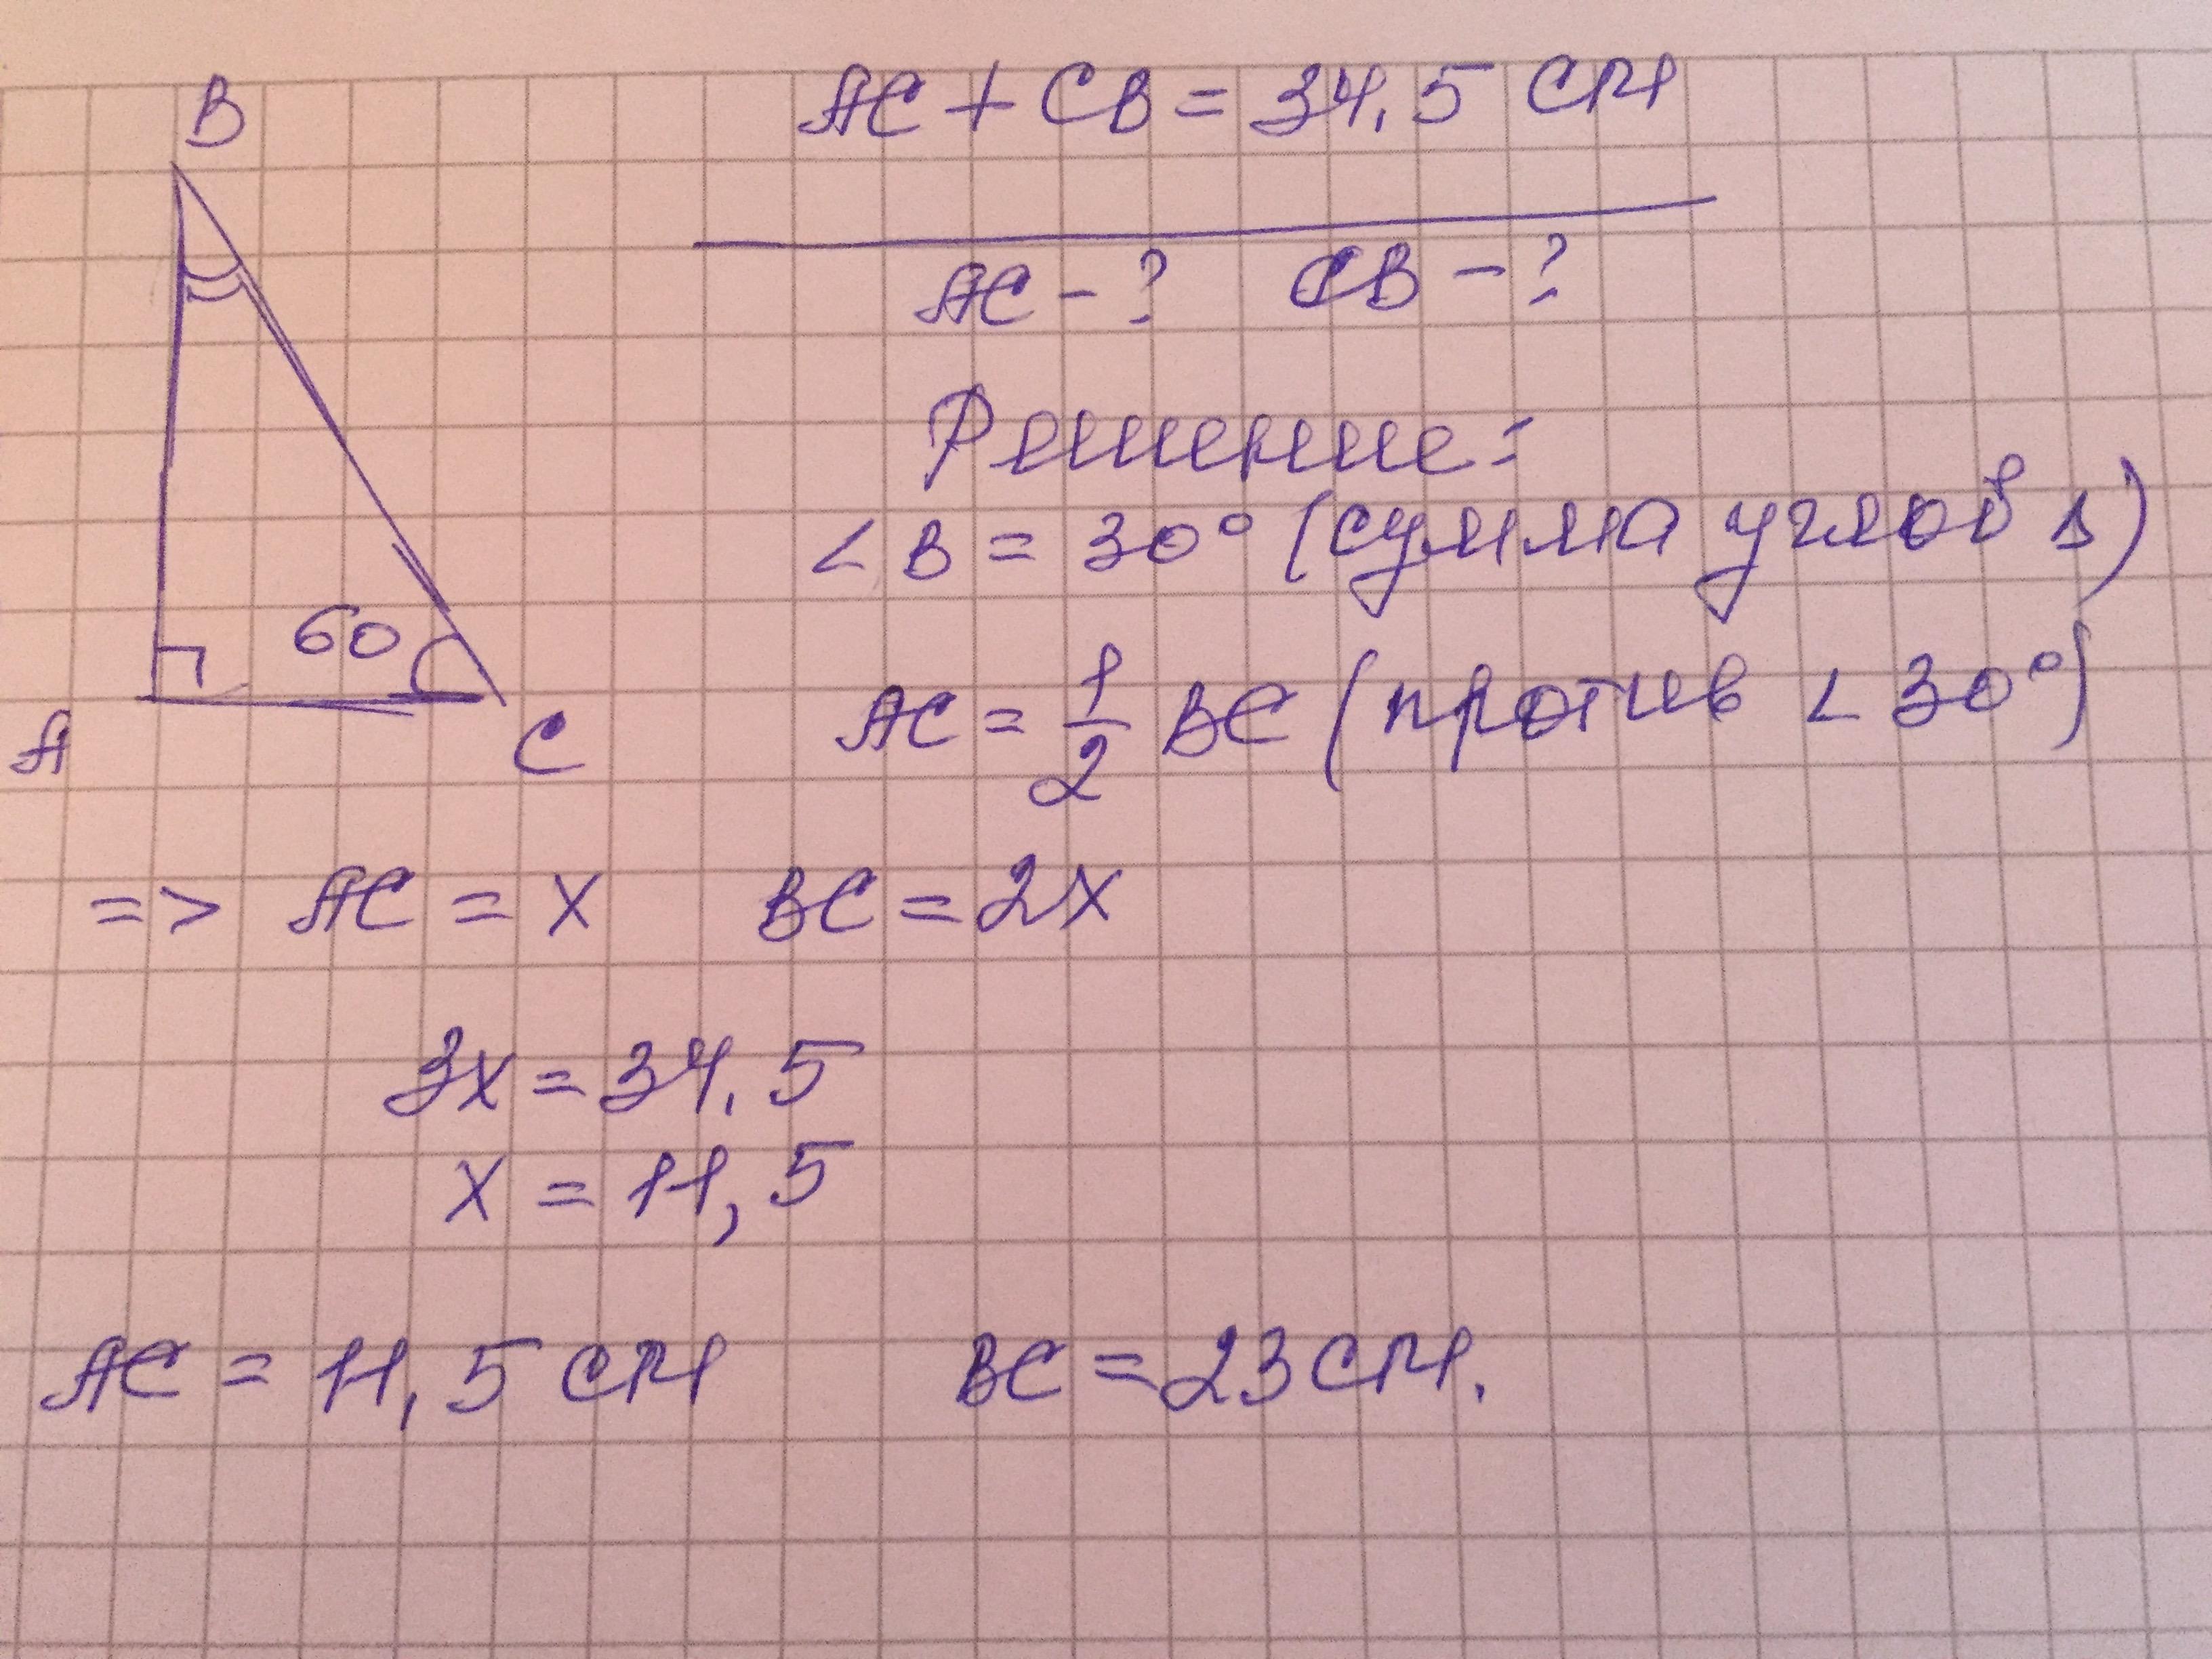 B
AC + CB = 34,5 см
AC - ? CB - ?
Решение:
∠B = 30° (сумма углов Δ)
60
AC = 1/2 BC (против ∠30°)
A C
=> AC = x BC = 2x
3x = 34,5
x = 11,5
AC = 11,5 см BC = 23 см.